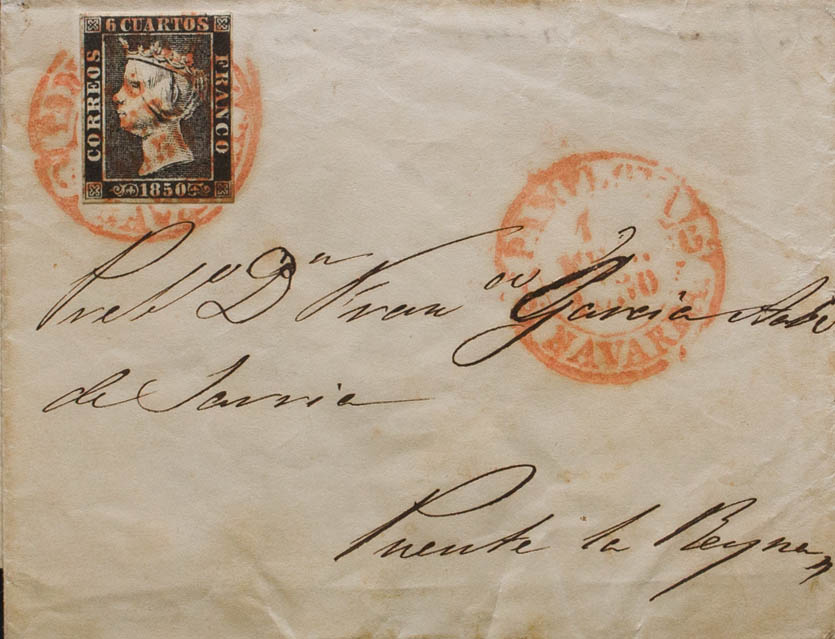 6 CUARTOS
CORREOS
FRANCO
1850
PAMPLONA
1
1850
NAVARRA
Preb.º D.n Fran.co Garcia
de Sarria
Puente la Reyna